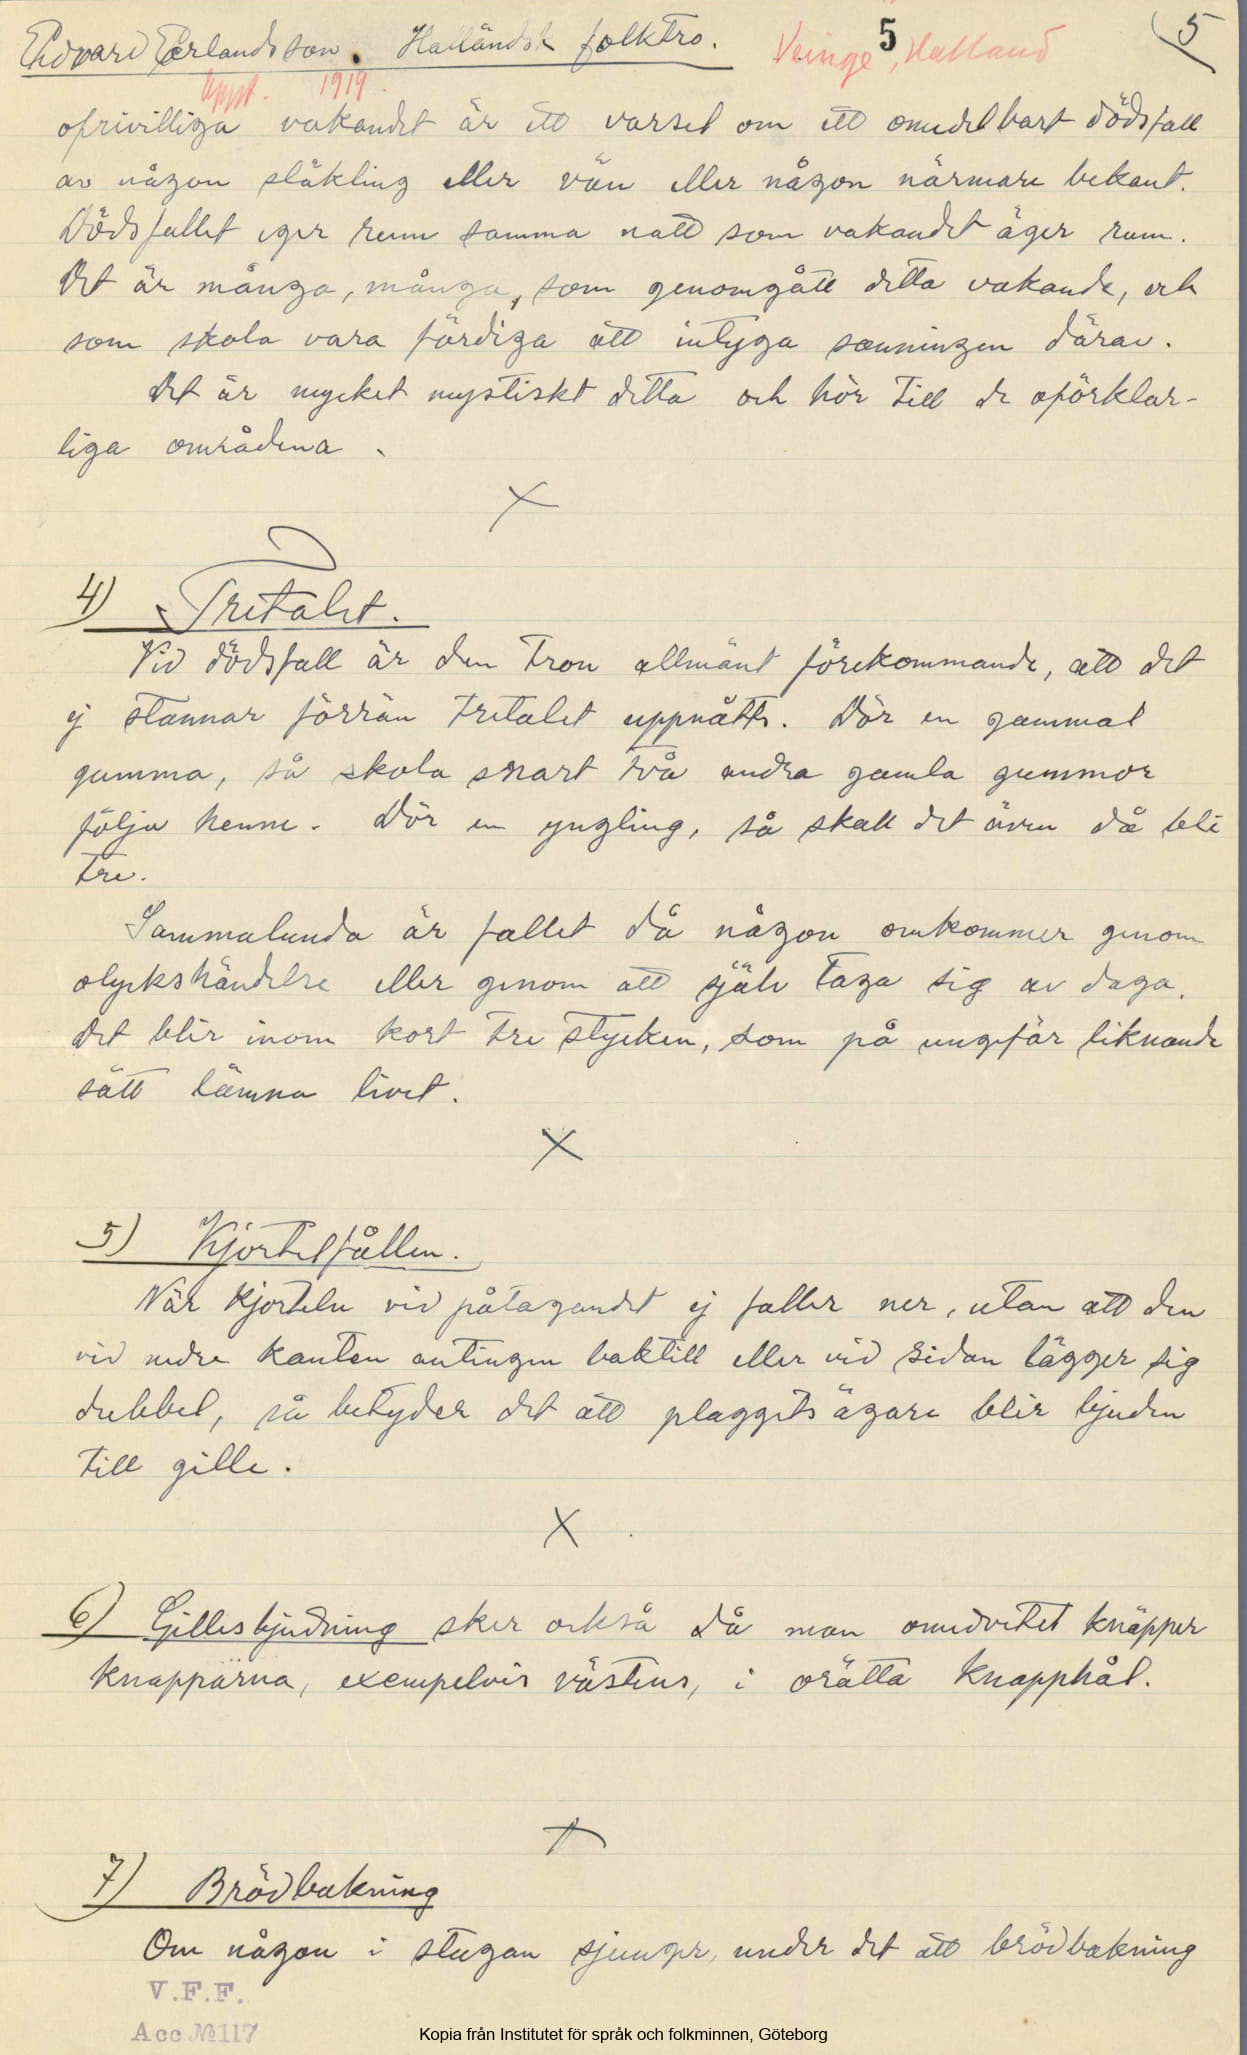 Edvard Erlandsson. Halländsk folktro. Veinge, Halland 5 5
Uppt. 1919.
ofrivilliga vakandet är ett varsel om ett omedelbart dödsfall
av någon släkling eller vän eller någon närmare bekant.
Dödsfallet eger rum samma natt som vakandet äger rum.
Det är många, många, som genomgått detta vakande, och
som skola vara färdiga att intyga sanningen därav.
Det är mycket mystiskt detta och hör till de oförklar-
liga områdena.
4) Tretalet.
Vid dödsfall är den tron allmänt förekommande, att det
ej stannar förrän tretalet uppnåtts. Dör en gammal
gumma, så skola snart två andra gamla gummor
följa henne. Dör en yngling, så skall det även då bli
tre.
Sammalunda är fallet då någon omkommer genom
olyckshändelse eller genom att själv taga sig av daga.
Det blir inom kort tre stycken, som på ungefär liknande
sätt lämna livet.
5) Kjortelfållen.
När kjorteln vid påtagandet ej faller ner, utan att den
vid nedre kanten antingen baktill eller vid sidan lägger sig
dubbel, så betyder det att plaggets ägare blir bjuden
till gille.
6) Gillesbjudning sker också då man omedvetet knäpper
knapparna, exempelvis västens, i orätta knapphål.
7) Brödbakning
Om någon i stugan sjunger, under det att brödbakning
V.F.F.
Acc №117
Kopia från Institutet för språk och folkminnen, Göteborg